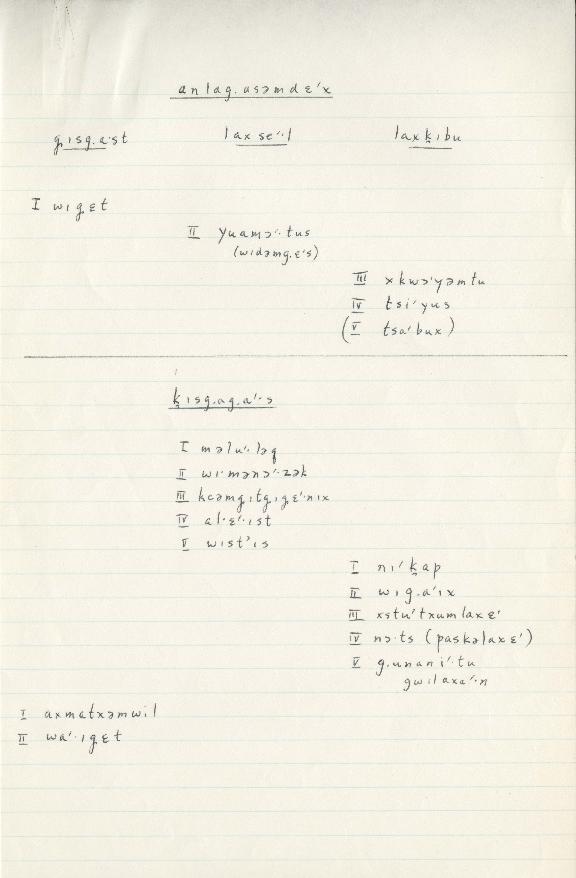 anlag.asəmdɛ'x
g̱ısg.a·st laxse'·l laxḵıbu
I wıg̱ɛt
II yuamɔ'·tus
(widəmg.ɛ's)
III xkwɔ'yəmtu
IV tsi'yus
(V tsa'bux)
ḵısg.ag.a'·s
I məlu'·ləq
II wi·mənɔ'·zək
III kcəmg̱ıtg̱ıg̱ɛ'nıx
IV al·ɛ'·ıst
V wist'ıs
I nı'ḵap
II wıg.a'ıx
III xstu'txumlaxɛ'
IV nɔ·ts (paskəlaxɛ')
V g.unani'·tu
gwılaxa'·n
I axmatxəmwıl
II wa'·ıg̱ɛt